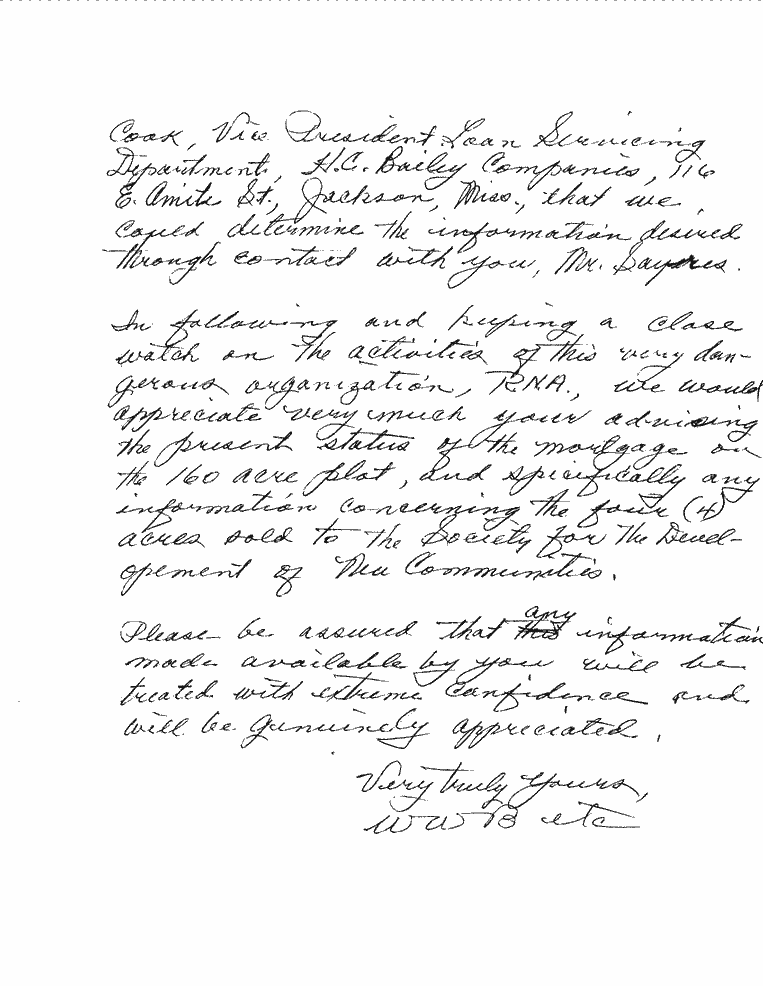 Cook, Vice President, Loan Servicing
Department, H.C. Bailey Companies, 116
E. Amite St., Jackson, Miss., that we
could determine the information desired
through contact with you, Mr. Sayres.
In following and keeping a close
watch on the activities of this very dan-
gerous organization, RNA., we would
appreciate very much your advising
the present status of the mortgage on
the 160 acre plot, and specifically any
information concerning the four (4)
acres sold to the Society for The Devel-
opement of New Communities.
Please be assured that any information
made available by you will be
treated with extreme confidence and
will be genuinely appreciated.
Very truly yours,
WWB etc